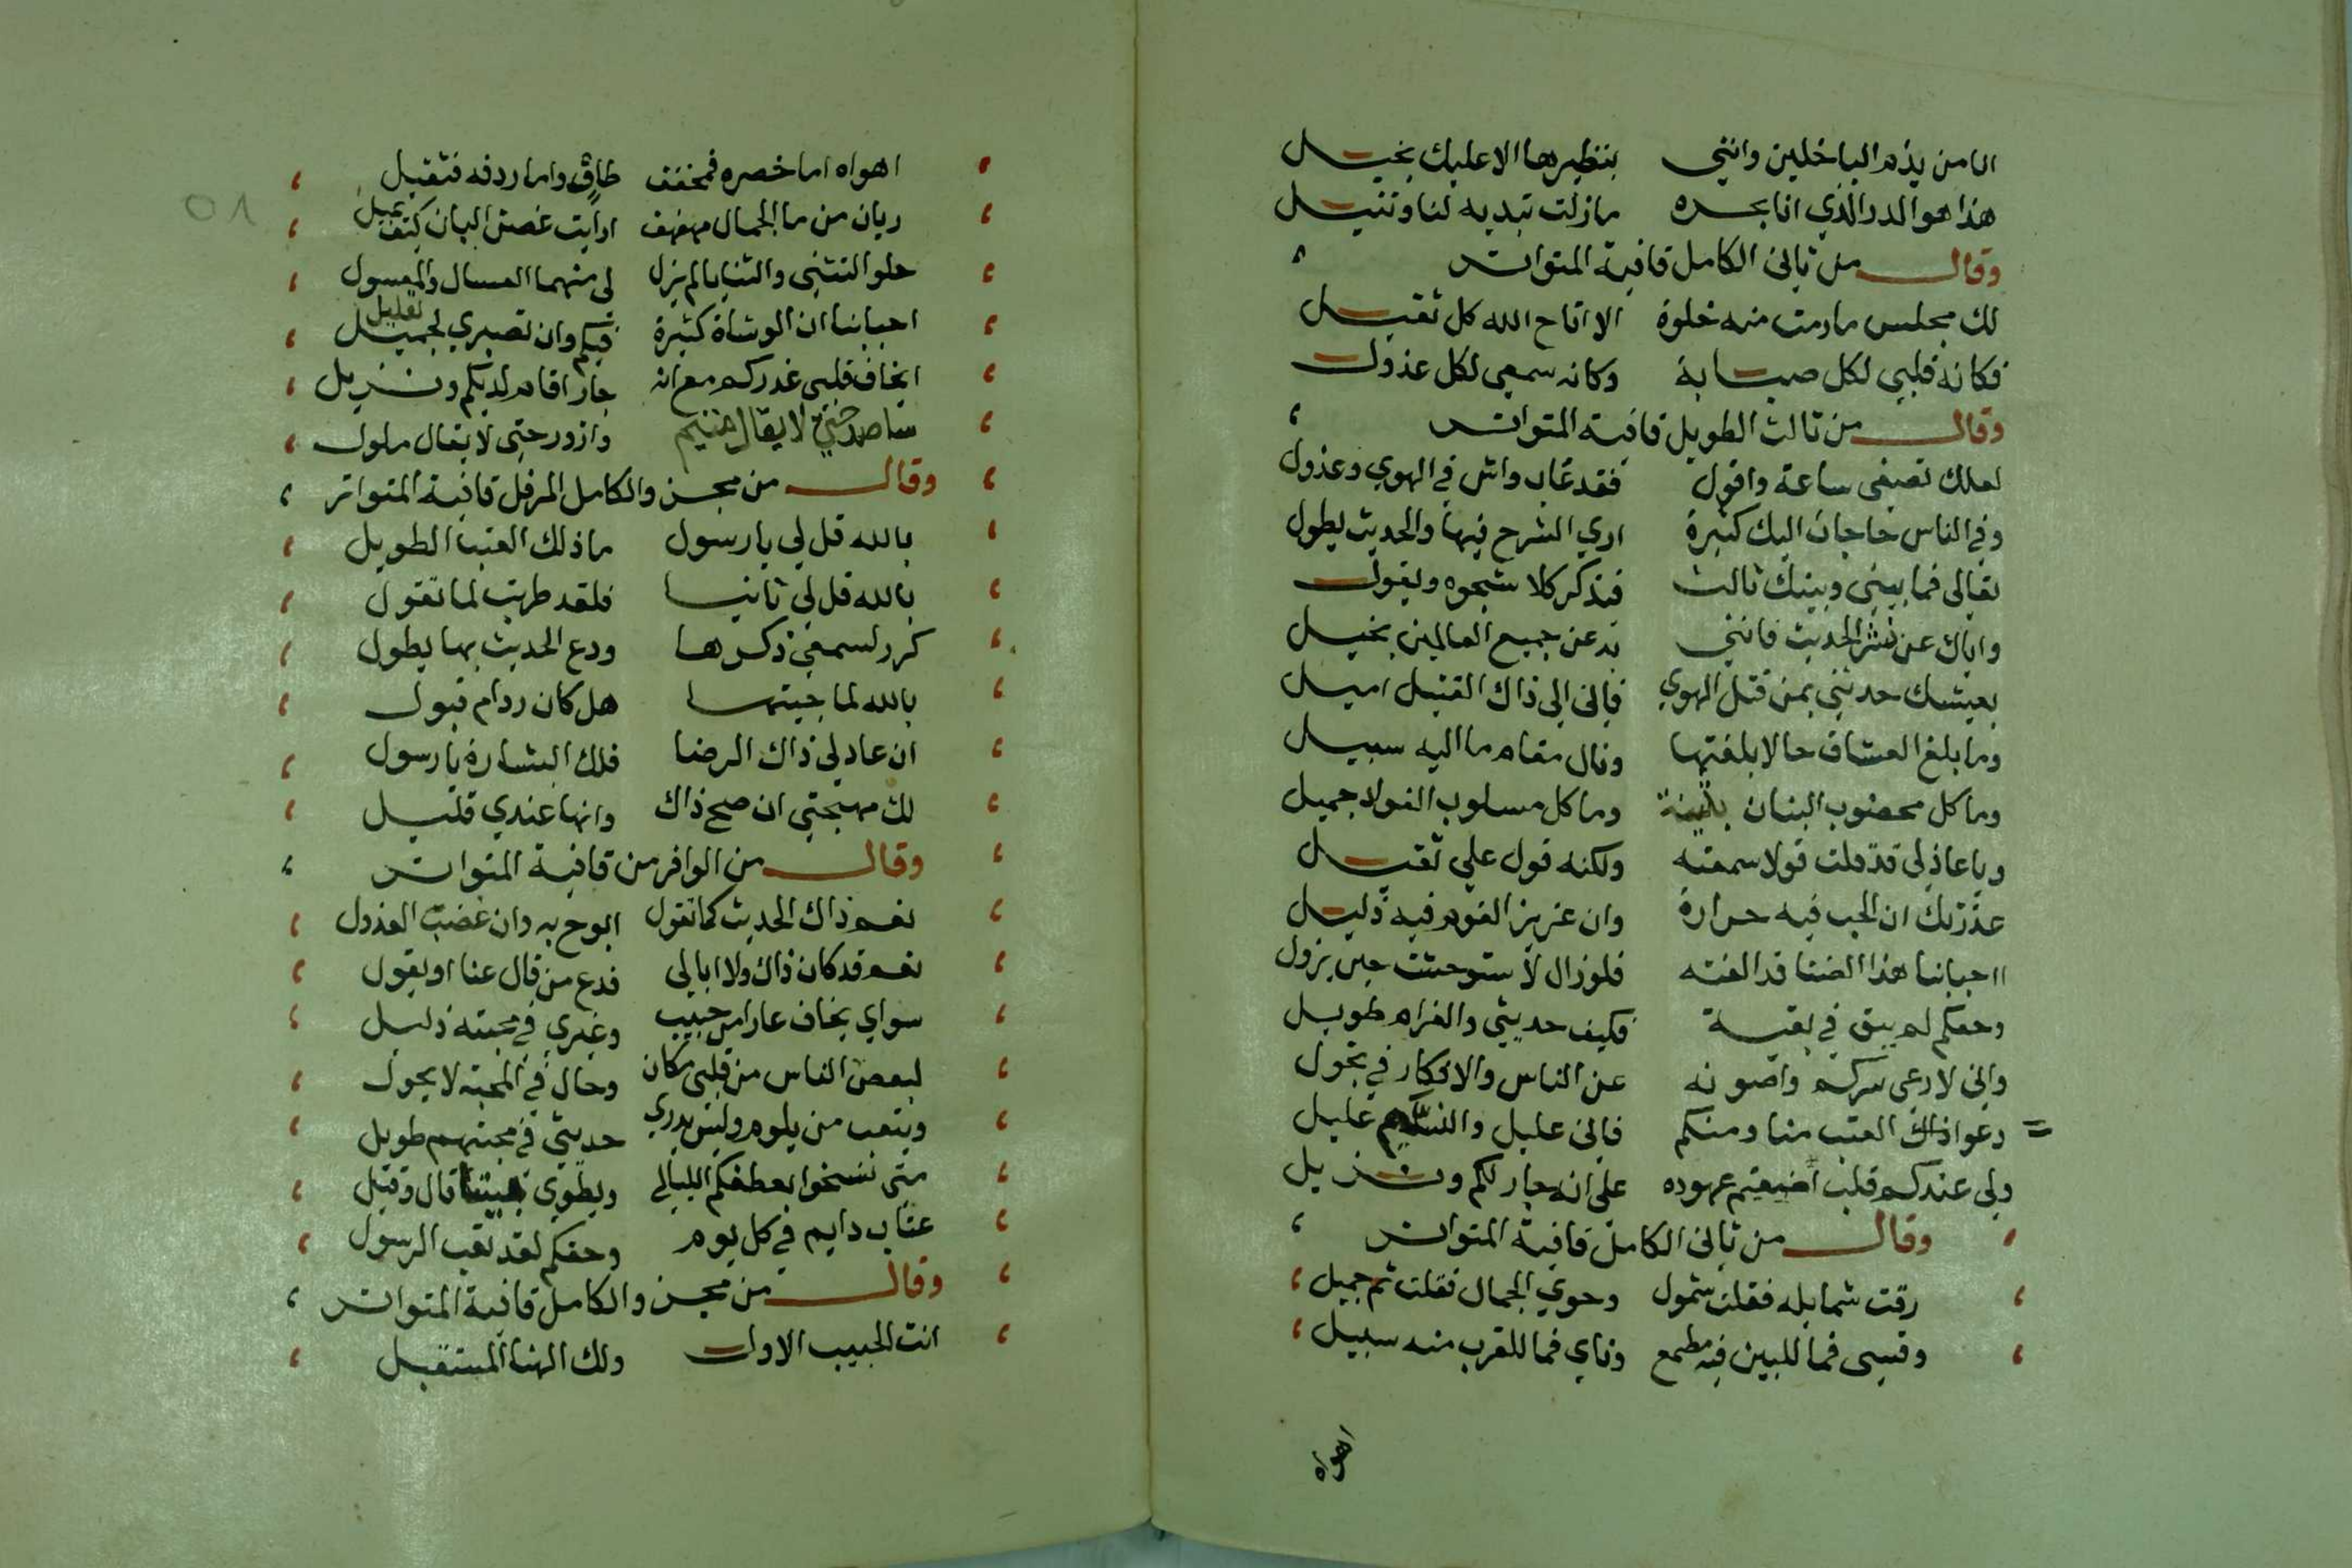 انا من يذم الباخلين وانني بنظيرها الا عليك بخيل
هذا هو الدر الذي انا بحره مازلت تبديه لنا وتنيل
وقال من ثاني الكامل قافية المتواتر
لك مجلس مارمت منه خلوة الا اتاح الله كل ثقيل
فكانه قلبي لكل صبابة وكانه سمعي لكل عذول
وقال من ثالث الطويل قافية المتواتر
لعلك تصغي ساعة واقول فقد غاب واش في الهوي وعذول
وفي الناس حاجات اليك كثيرة اري الشرح فيها والحديث يطول
تعالي فما بيني وبينك ثالث فتذكر كلا شجوه ويقول
واياك عن نشر الحديث فانني به عن جميع العالمين بخيل
بعيشك حدثني بمن قتل الهوي فاني الي ذاك القتيل اميل
وما بلغ العشاق حالا بلغتها ونال مقام ما اليه سبيل
وما كل مخضوب البنان بثينة وما كل مسلوب الفواد جميل
ويا عاذلي قد قلت قولا سمعته ولكنه قول علي ثقيل
عذرتك ان الحب فيه حرارة وان عزيز القوم فيه ذليل
ااحبابنا هذا الضنا قد الفته فلو زال لاستوحشت حين يزول
وحقكم لم يبق في بقية فكيف حديثي والغرام طويل
واني لارعي سركم واصونه عن الناس والافكار في تجول
دعوا ذاك العتب منا ومنكم فاني عليل والنسيم عليل
ولي عندكم قلب اضعتم عهوده علي انه جار لكم ونزيل
وقال من ثاني الكامل قافية المتواتر
رقت شمايله فقلت شمول وحوي الجمال فقلت ثم جميل
وقسي فما للبين فيه مطمع وناي فما للقرب منه سبيل
اهواه
اهواه اما خصره فمخفف طاق واما ردفه فثقيل
ريان من ما الجمال مهفهف ارايت غصن البان كيف يميل
حلو التثني والثنايا لم يزل لي منهما العسال والمعسول
احبابنا ان الوشاة كثيرة فيكم وان تصبري لجميل
تقليل
ايخاف قلبي غدركم مع انه جار اقام لديكم ونزيل
ساصد حتي لا يقال متيم وازور حتي لا يقال ملول
وقال من مجزو الكامل المرفل قافية المتواتر
بالله قل لي يا رسول ما ذلك العتب الطويل
بالله قل لي ثانيا فلقد طربت لما تقول
كرر لسمعي ذكرها ودع الحديث بها يطول
بالله لما جيتها هل كان رد ام قبول
ان عاد لي ذاك الرضا فلك البشارة يا رسول
لك مهجتي ان صح ذاك وانها عندي قليل
وقال من الوافر من قافية المتواتر
نعم ذاك الحديث كما تقول ابوح به وان غضب العذول
نعم قد كان ذاك ولا ابالي فدع من قال عنا او يقول
سواي يخاف عارا من حبيب وغيري في محبته ذليل
لبعض الناس من قلبي مكان وحال في المحبة لا يحول
ويتعب من يلوم وليس يدري حديثي في محبتهم طويل
متي تسخوا بعطفكم الليالي ويطوي بيننا قال وقيل
عتاب دايم في كل يوم وحقكم لقد تعب الرسول
وقال من مجزو الكامل قافية المتواتر
انت الحبيب الاول ولك الهنا المستقبل
٥١